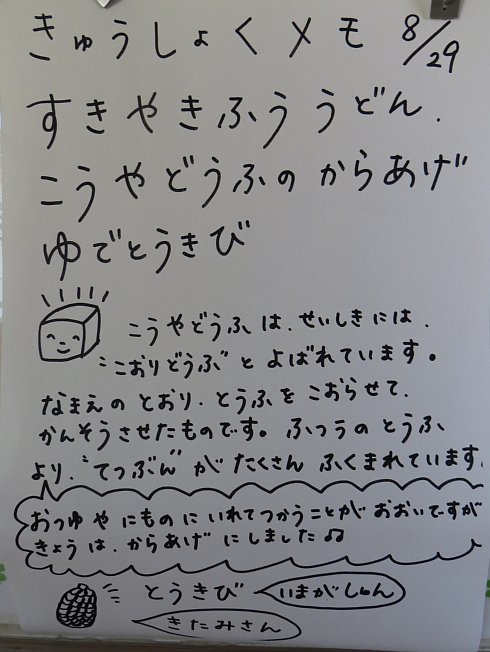 きゅうしょくメモ 8/29
すきやきふううどん.
こうやどうふのからあげ
ゆでとうきび
こうやどうふは、せいしきには、
"こおりどうふ"とよばれています。
なまえのとおり、とうふをこおらせて、
かんそうさせたものです。ふつうのとうふ
より、"てつぶん"がたくさんふくまれています。
おつゆやにものにいれてつかうことがおおいですが
きょうは、からあげにしました♫
とうきび いまがしゅん
きたみさん